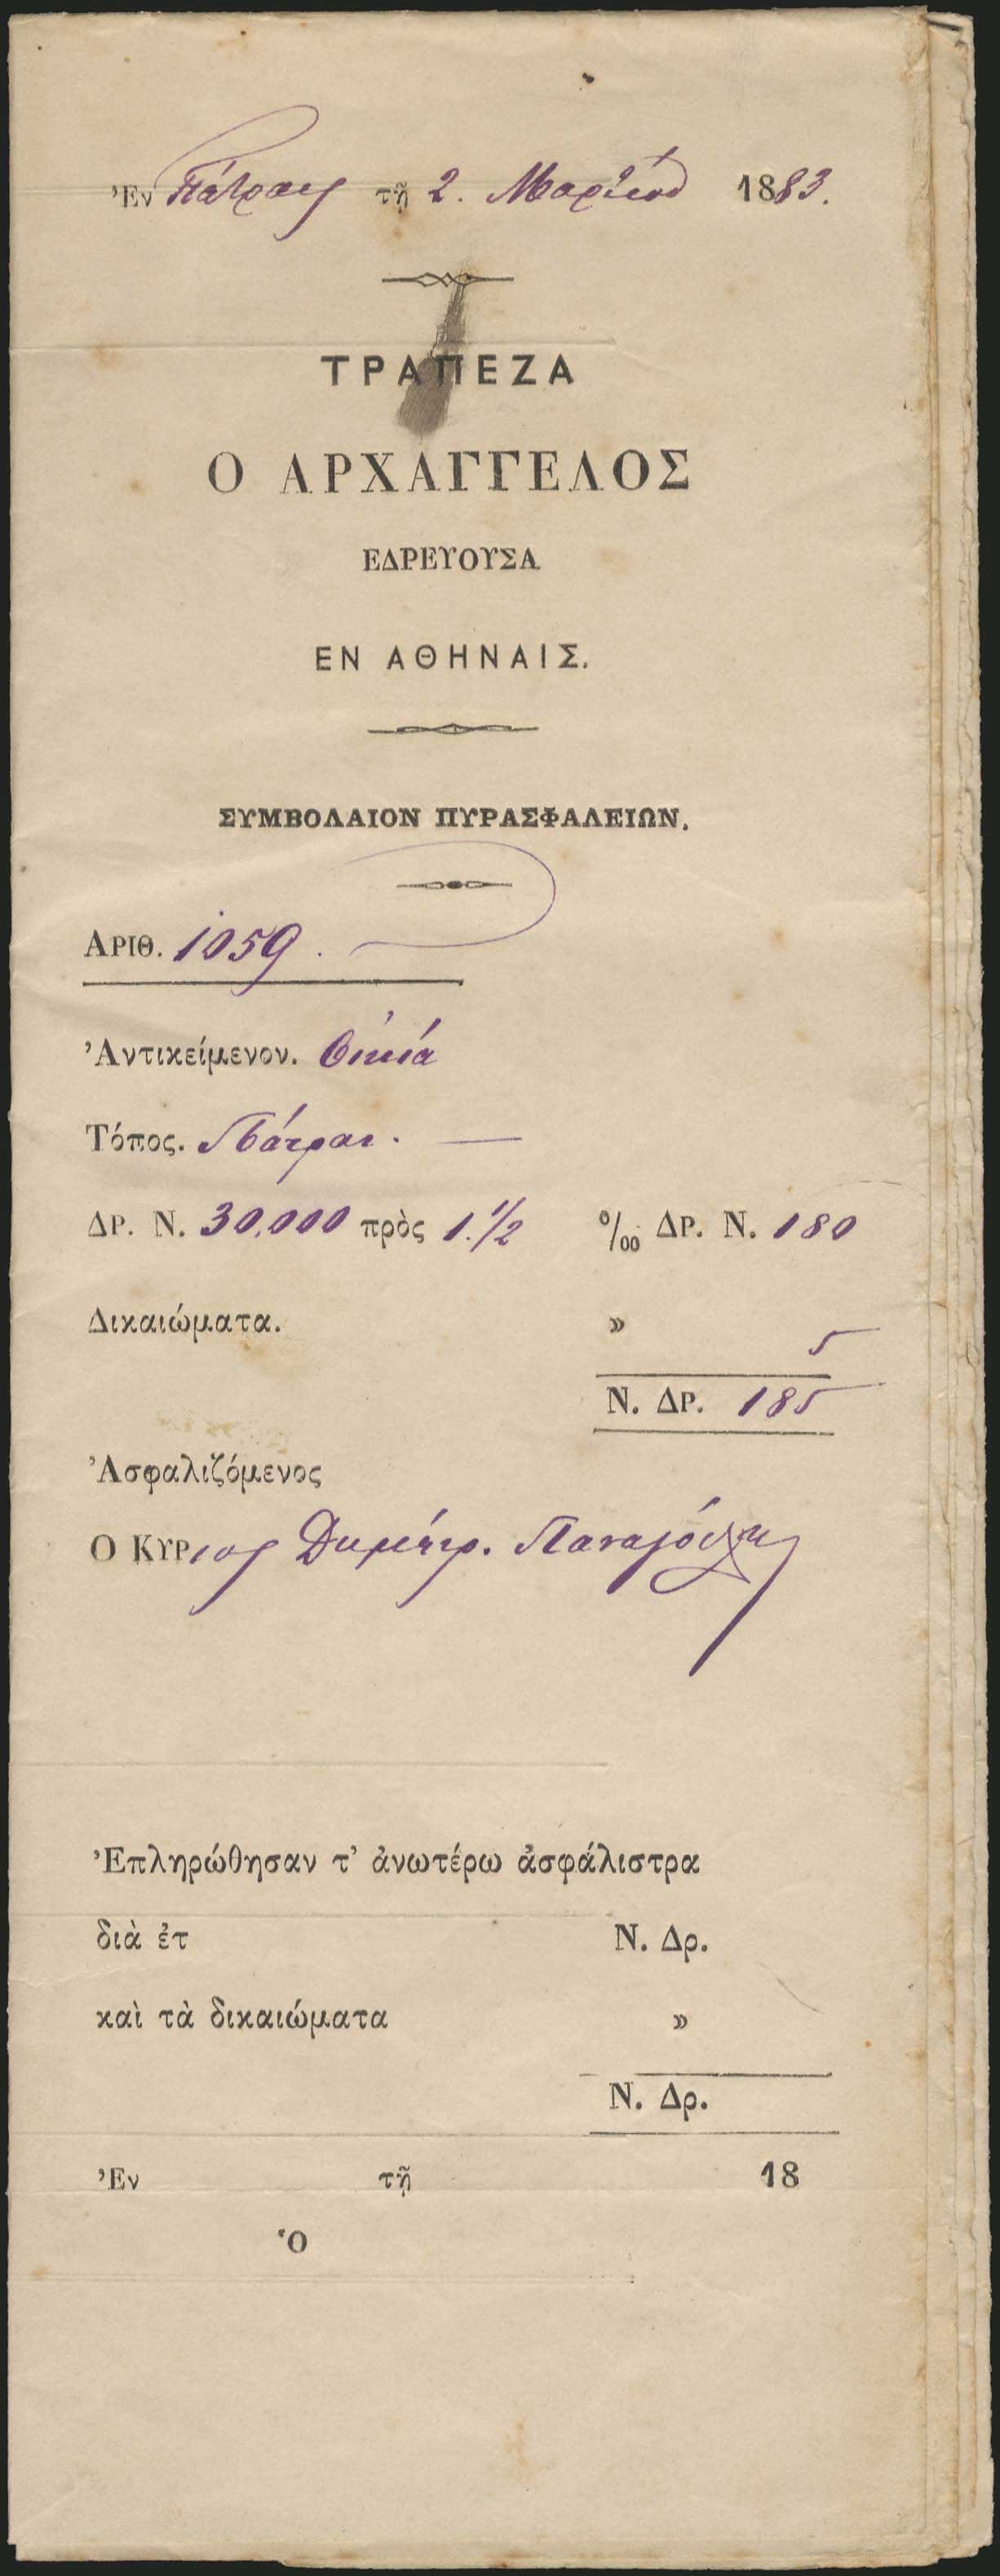 Ἐν Πάτραις τῇ 2. Μαρτίου 1883.
ΤΡΑΠΕΖΑ
Ο ΑΡΧΑΓΓΕΛΟΣ
ΕΔΡΕΥΟΥΣΑ
ΕΝ ΑΘΗΝΑΙΣ.
ΣΥΜΒΟΛΑΙΟΝ ΠΥΡΑΣΦΑΛΕΙΩΝ.
ΑΡΙΘ. 1059.
Ἀντικείμενον. Οἰκία
Τόπος. Πάτραι.
ΔΡ. Ν. 30,000 πρὸς 1.1/2 ‰ ΔΡ. Ν. 180
Δικαιώματα. » 5
Ν. ΔΡ. 185
Ἀσφαλιζόμενος
Ο ΚΥΡιος Δημήτρ.
Ἐπληρώθησαν τ' ἀνωτέρω ἀσφάλιστρα
διὰ ἐτ Ν. Δρ.
καὶ τὰ δικαιώματα »
Ν. Δρ.
Ἐν τῇ 18
Ὁ